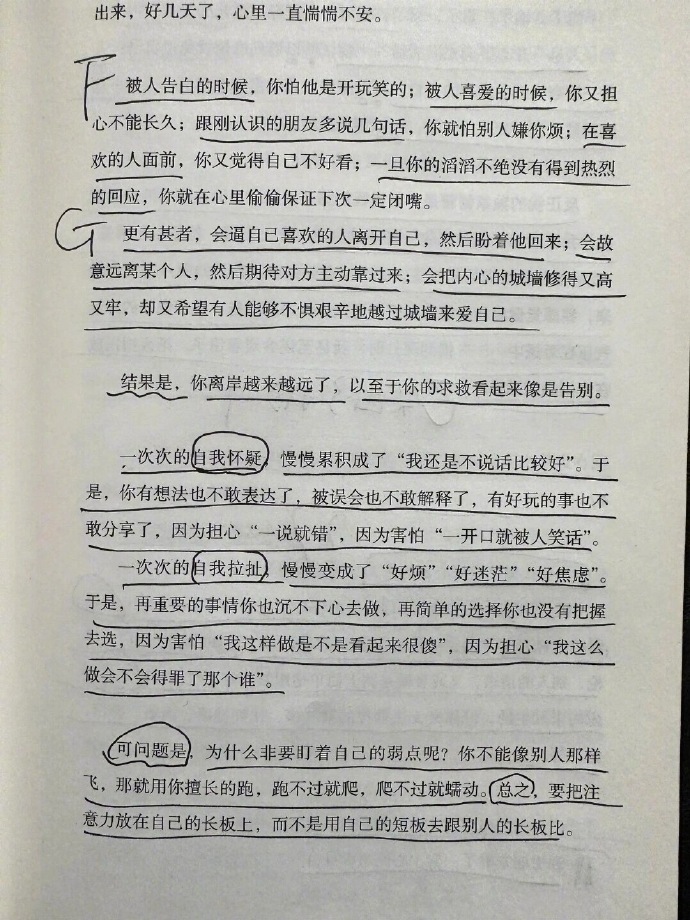 出来，好几天了，心里一直惴惴不安。
F
被人告白的时候，你怕他是开玩笑的；被人喜爱的时候，你又担
心不能长久；跟刚认识的朋友多说几句话，你就怕别人嫌你烦；在喜
欢的人面前，你又觉得自己不好看；一旦你的滔滔不绝没有得到热烈
的回应，你就在心里偷偷保证下次一定闭嘴。
G
更有甚者，会逼自己喜欢的人离开自己，然后盼着他回来；会故
意远离某个人，然后期待对方主动靠过来；会把内心的城墙修得又高
又牢，却又希望有人能够不惧艰辛地越过城墙来爱自己。
结果是，你离岸越来越远了，以至于你的求救看起来像是告别。
一次次的自我怀疑，慢慢累积成了“我还是不说话比较好”。于
是，你有想法也不敢表达了，被误会也不敢解释了，有好玩的事也不
敢分享了，因为担心“一说就错”，因为害怕“一开口就被人笑话”。
一次次的自我拉扯，慢慢变成了“好烦”“好迷茫”“好焦虑”。
于是，再重要的事情你也沉不下心去做，再简单的选择你也没有把握
去选，因为害怕“我这样做是不是看起来很傻”，因为担心“我这么
做会不会得罪了那个谁”。
可问题是，为什么非要盯着自己的弱点呢？你不能像别人那样
飞，那就用你擅长的跑，跑不过就爬，爬不过就蠕动。总之，要把注
意力放在自己的长板上，而不是用自己的短板去跟别人的长板比。